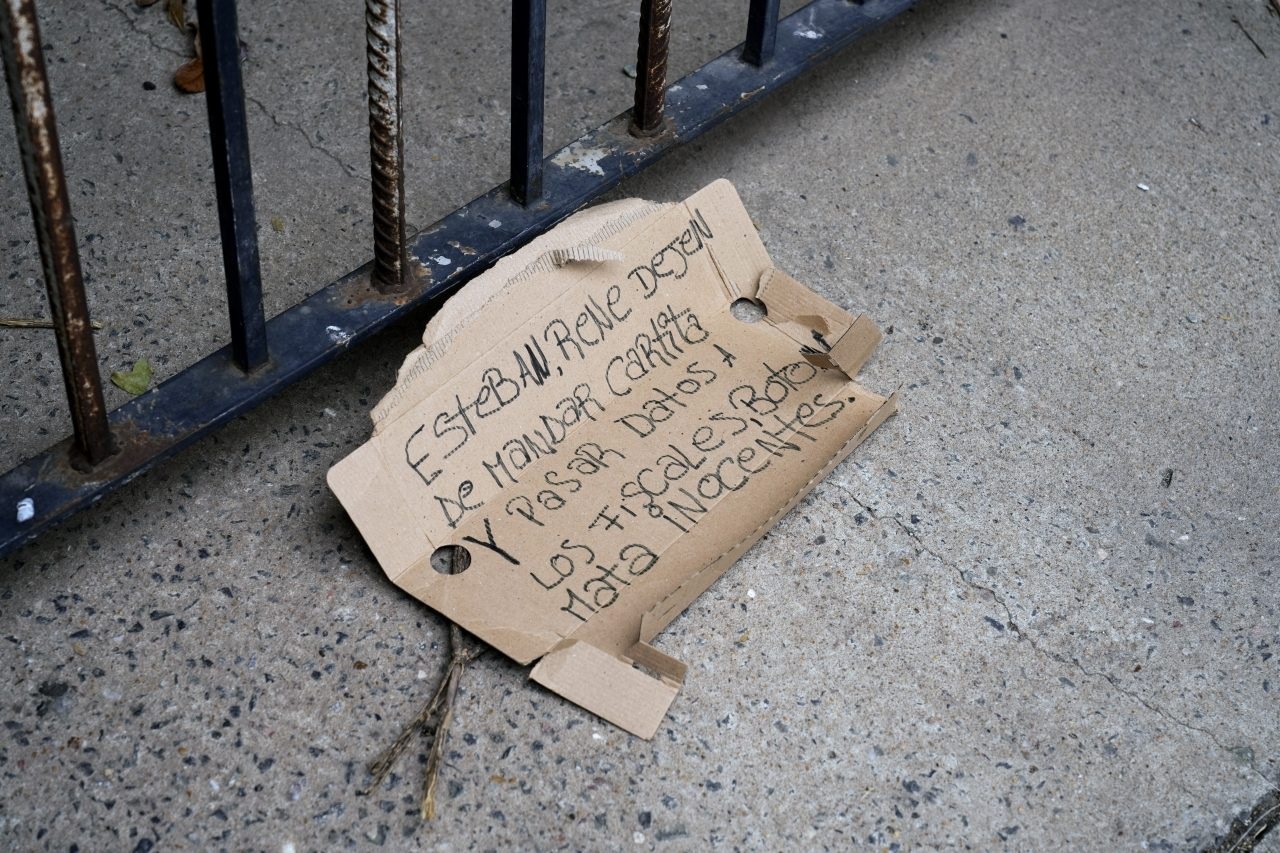 ESteBAN, RENE DEJEN
DE MANDAR CARtita
Y PASAR DATOS A
LOS FISCALES, BOtON,
Mata iNOCENtES.